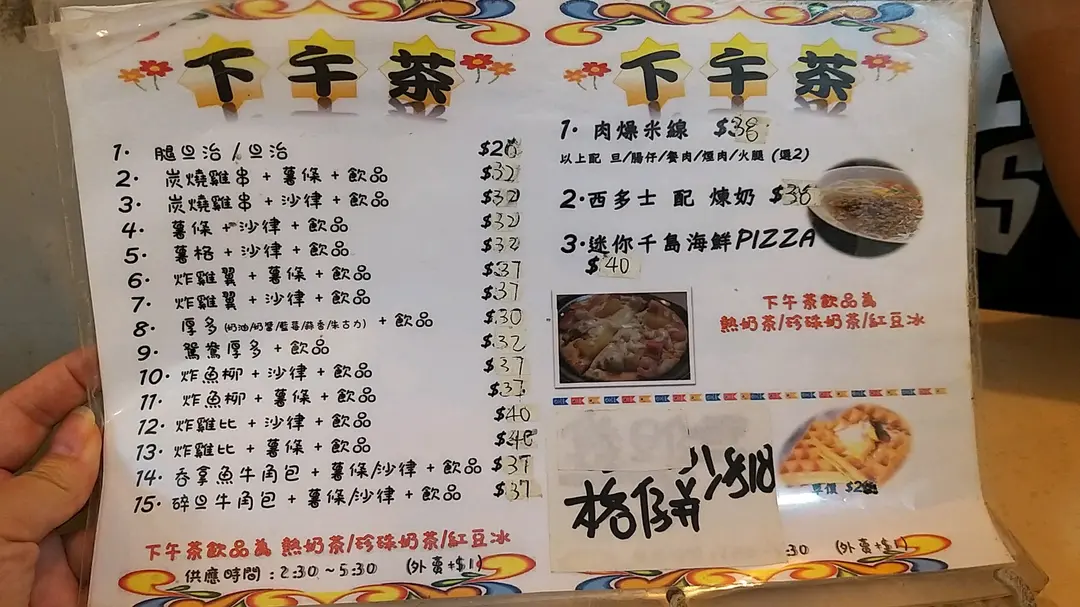 下午茶
1. 腿旦治 / 旦治 $26
2. 炭燒雞串 + 薯條 + 飲品 $32
3. 炭燒雞串 + 沙律 + 飲品 $32
4. 薯條 + 沙律 + 飲品 $32
5. 薯格 + 沙律 + 飲品 $32
6. 炸雞翼 + 薯條 + 飲品 $37
7. 炸雞翼 + 沙律 + 飲品 $37
8. 厚多 (奶油/奶醬/藍莓/蒜香/朱古力) + 飲品 $30
9. 鴛鴦厚多 + 飲品 $32
10. 炸魚柳 + 沙律 + 飲品 $37
11. 炸魚柳 + 薯條 + 飲品 $37
12. 炸雞比 + 沙律 + 飲品 $40
13. 炸雞比 + 薯條 + 飲品 $40
14. 吞拿魚牛角包 + 薯條/沙律 + 飲品 $37
15. 碎旦牛角包 + 薯條/沙律 + 飲品 $37
下午茶飲品為 熱奶茶/珍珠奶茶/紅豆冰
供應時間 : 2:30 ~ 5:30 (外賣+$1)
下午茶
1. 肉燥米線 $38
以上配 旦/腸仔/餐肉/煙肉/火腿 (選2)
2. 西多士 配 煉奶 $36
3. 迷你千島海鮮PIZZA
$40
下午茶飲品為
熱奶茶/珍珠奶茶/紅豆冰
格仔并 小$18
單價 $2
:30 (外賣+$1)